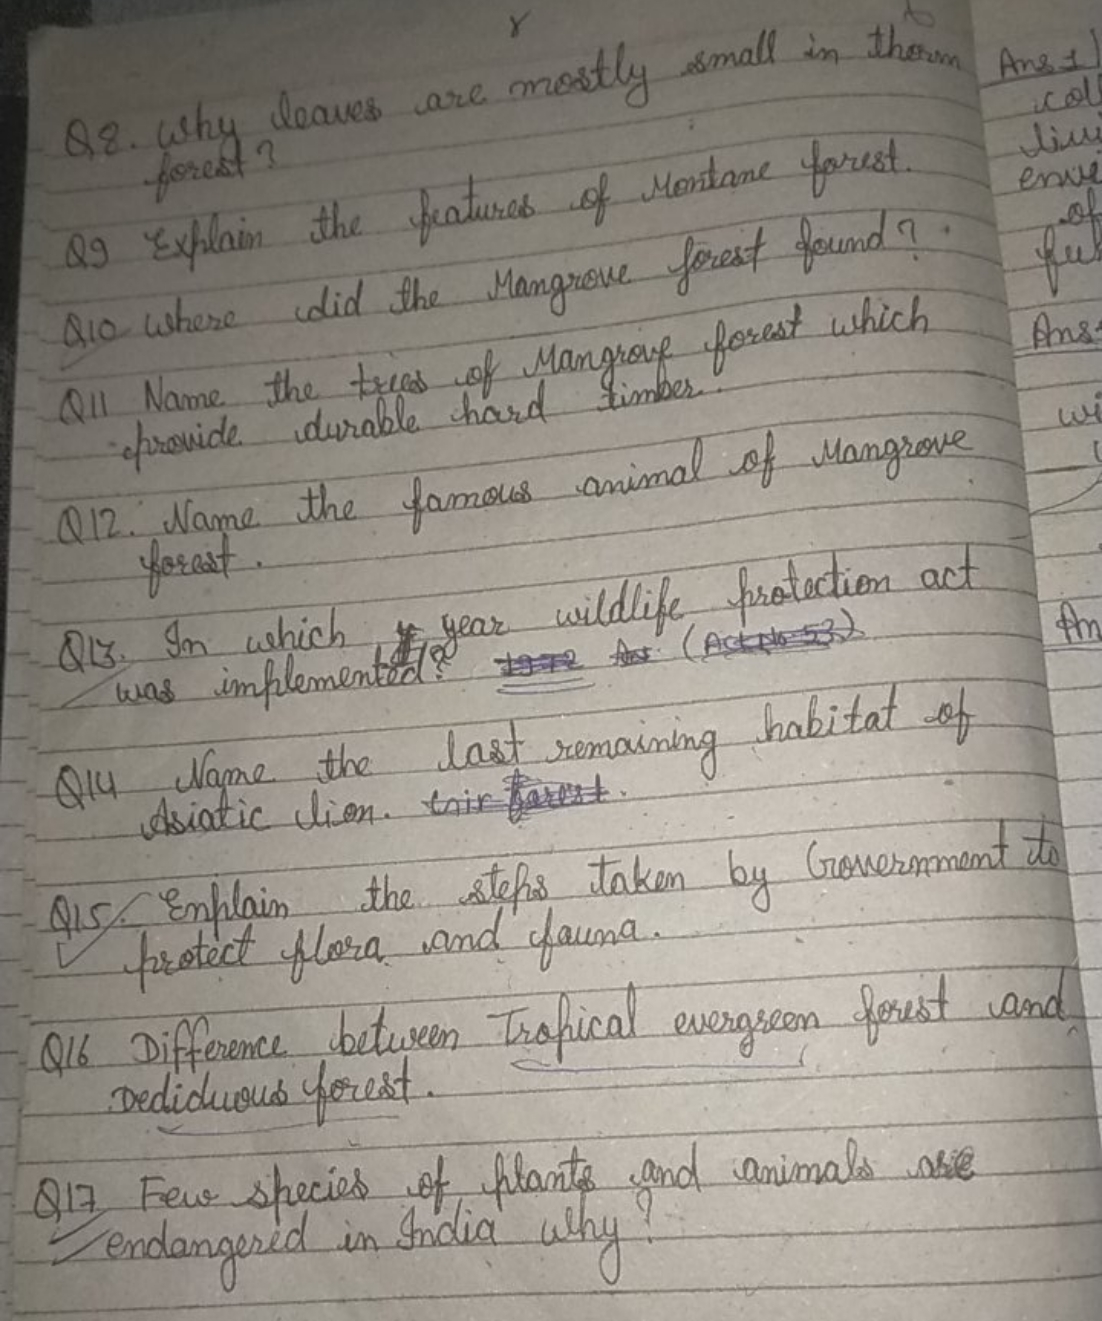 Q8. Why leaves are mostly small in thorn
forest?
Q9 Explain the features of Montane forest.
Q10 Where did the Mangrove forest found?
Q11 Name the trees of Mangrove forest which
provide durable hard timber.
Q12. Name the famous animal of Mangrove
forest.
Q13. In which year wildlife protection act
was implemented? 1972 Ans (Act No 53)
Q14 Name the last remaining habitat of
Asiatic lion. forest.
Q15. Explain the steps taken by Government to
protect flora and fauna.
Q16 Difference between Tropical evergreen forest and
Dediduous forest.
Q17 Few species of plants and animals are
endangered in India why?
Ans 1)
of
Ans
wi
An